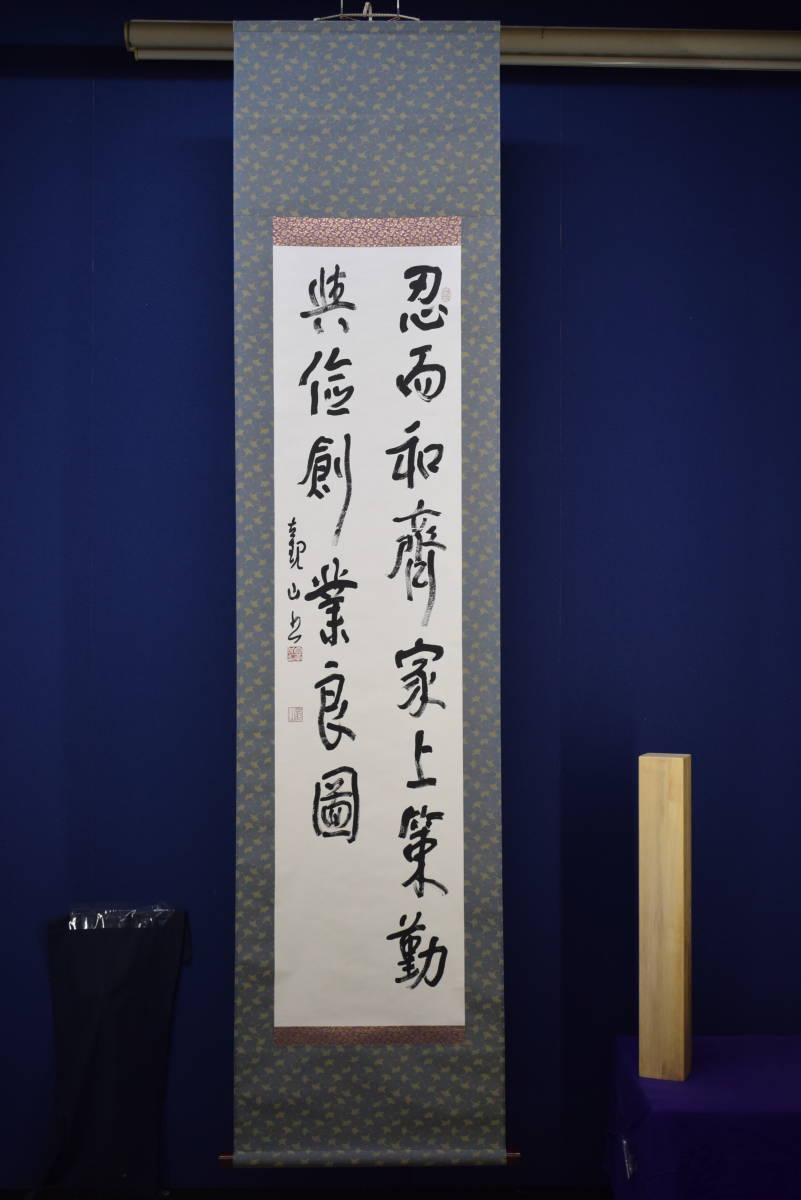 忍而和齊家上策勤
與儉創業良圖
觀山書